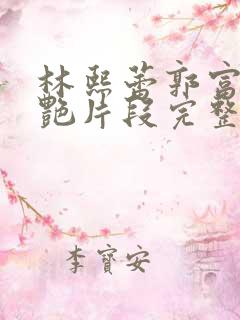 林熙蕾郭富
艳片段完整
李寶安